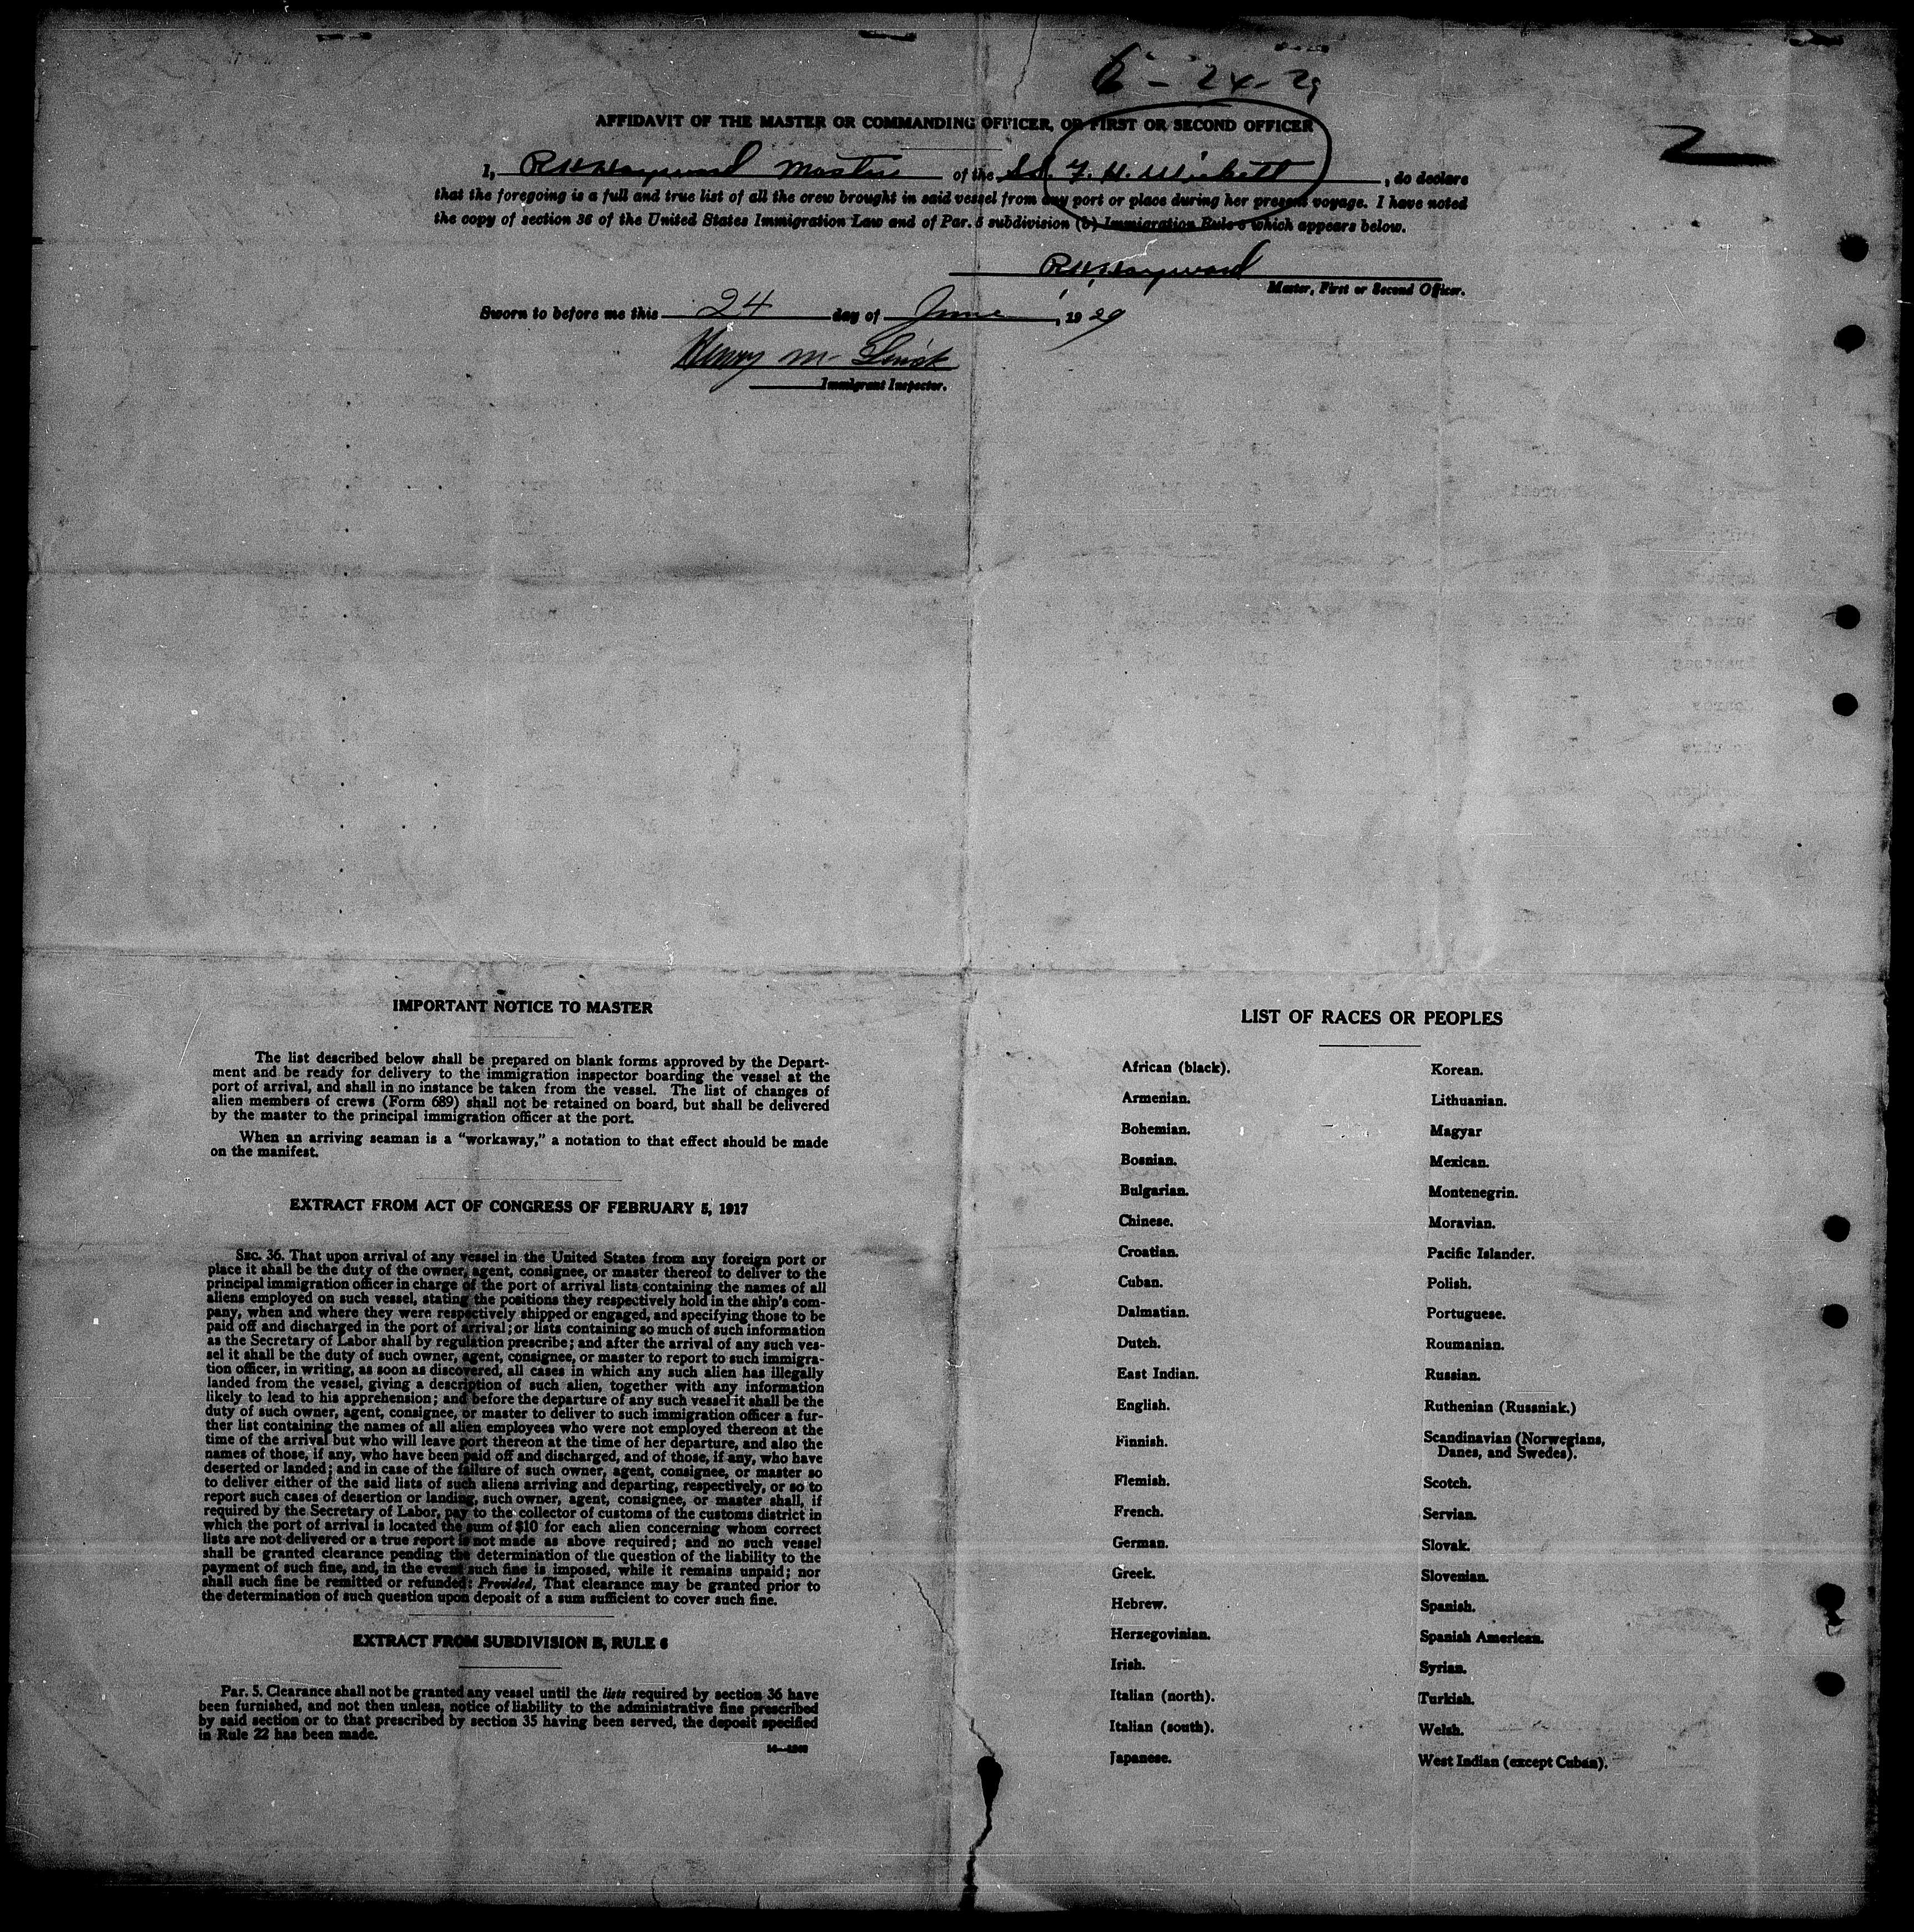 6-24-29
AFFIDAVIT OF THE MASTER OR COMMANDING OFFICER, OR FIRST OR SECOND OFFICER
I, R H Hayward Master of the SS. F. H. Wickett, do declare
that the foregoing is a full and true list of all the crew brought in said vessel from any port or place during her present voyage. I have noted
the copy of section 36 of the United States Immigration Law and of Par. 5 subdivision (b) Immigration Rule 6 which appears below.
R H Hayward
Master, First or Second Officer.
Sworn to before me this 24 day of June, 1929
Henry M.
Immigrant Inspector.
IMPORTANT NOTICE TO MASTER
The list described below shall be prepared on blank forms approved by the Depart-
ment and be ready for delivery to the immigration inspector boarding the vessel at the
port of arrival, and shall in no instance be taken from the vessel. The list of changes of
alien members of crews (Form 689) shall not be retained on board, but shall be delivered
by the master to the principal immigration officer at the port.
When an arriving seaman is a "workaway," a notation to that effect should be made
on the manifest.
EXTRACT FROM ACT OF CONGRESS OF FEBRUARY 5, 1917
SEC. 36. That upon arrival of any vessel in the United States from any foreign port or
place it shall be the duty of the owner, agent, consignee, or master thereof to deliver to the
principal immigration officer in charge of the port of arrival lists containing the names of all
aliens employed on such vessel, stating the positions they respectively hold in the ship's com-
pany, when and where they were respectively shipped or engaged, and specifying those to be
paid off and discharged in the port of arrival; or lists containing so much of such information
as the Secretary of Labor shall by regulation prescribe; and after the arrival of any such ves-
sel it shall be the duty of such owner, agent, consignee, or master to report to such immigra-
tion officer, in writing, as soon as discovered, all cases in which any such alien has illegally
landed from the vessel, giving a description of such alien, together with any information
likely to lead to his apprehension; and before the departure of any such vessel it shall be the
duty of such owner, agent, consignee, or master to deliver to such immigration officer a fur-
ther list containing the names of all alien employees who were not employed thereon at the
time of the arrival but who will leave port thereon at the time of her departure, and also the
names of those, if any, who have been paid off and discharged, and of those, if any, who have
deserted or landed; and in case of the failure of such owner, agent, consignee, or master so
to deliver either of the said lists of such aliens arriving and departing, respectively, or so to
report such cases of desertion or landing, such owner, agent, consignee, or master shall, if
required by the Secretary of Labor, pay to the collector of customs of the customs district in
which the port of arrival is located the sum of $10 for each alien concerning whom correct
lists are not delivered or a true report is not made as above required; and no such vessel
shall be granted clearance pending the determination of the question of the liability to the
payment of such fine, and, in the event such fine is imposed, while it remains unpaid; nor
shall such fine be remitted or refunded: Provided, That clearance may be granted prior to
the determination of such question upon deposit of a sum sufficient to cover such fine.
EXTRACT FROM SUBDIVISION B, RULE 6
Par. 5. Clearance shall not be granted any vessel until the lists required by section 36 have
been furnished, and not then unless, notice of liability to the administrative fine prescribed
by said section or to that prescribed by section 35 having been served, the deposit specified
in Rule 22 has been made.
LIST OF RACES OR PEOPLES
African (black).
Armenian.
Bohemian.
Bosnian.
Bulgarian.
Chinese.
Croatian.
Cuban.
Dalmatian.
Dutch.
East Indian.
English.
Finnish.
Flemish.
French.
German.
Greek.
Hebrew.
Herzegovinian.
Irish.
Italian (north).
Italian (south).
Japanese.
Korean.
Lithuanian.
Magyar
Mexican.
Montenegrin.
Moravian.
Pacific Islander.
Polish.
Portuguese.
Roumanian.
Russian.
Ruthenian (Russniak.)
Scandinavian (Norwegians,
Danes, and Swedes).
Scotch.
Servian.
Slovak.
Slovenian.
Spanish.
Spanish American.
Syrian.
Turkish.
Welsh.
West Indian (except Cuban).